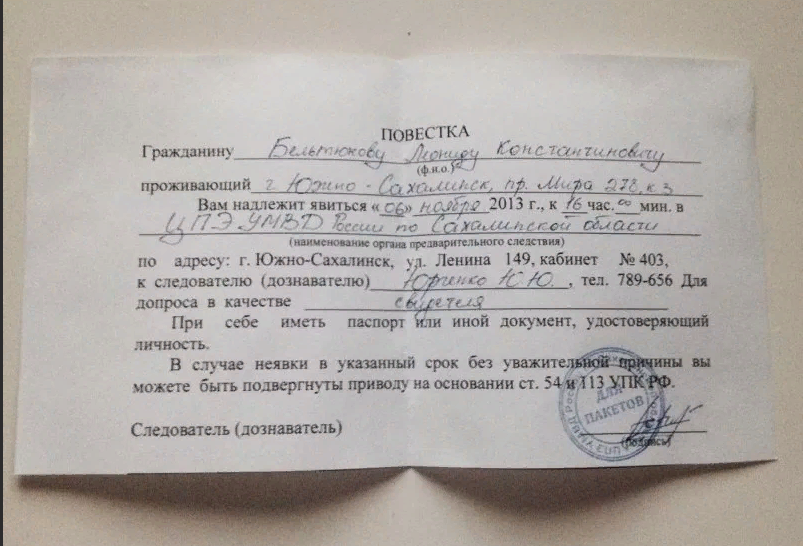 ПОВЕСТКА
Гражданину Бельтюкову Леониду Константиновичу
(ф.и.о.)
проживающий г. Южно-Сахалинск, пр. Мира 278, к 3
Вам надлежит явиться «06» ноября 2013 г., к 16 час. 00 мин. в
ЦПЭ УМВД России по Сахалинской области
(наименование органа предварительного следствия)
по адресу: г. Южно-Сахалинск, ул. Ленина 149, кабинет № 403,
к следователю (дознавателю) Юрченко Ю.Ю., тел. 789-656 Для
допроса в качестве свидетеля
При себе иметь паспорт или иной документ, удостоверяющий
личность.
В случае неявки в указанный срок без уважительной причины вы
можете быть подвергнуты приводу на основании ст. 54 и 113 УПК РФ.
ДЛЯ
ПАКЕТОВ
Следователь (дознаватель)
(подпись)